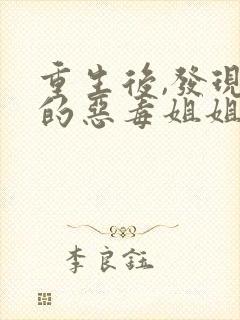 重生後,發現
的惡毒姐姐
李良鈺